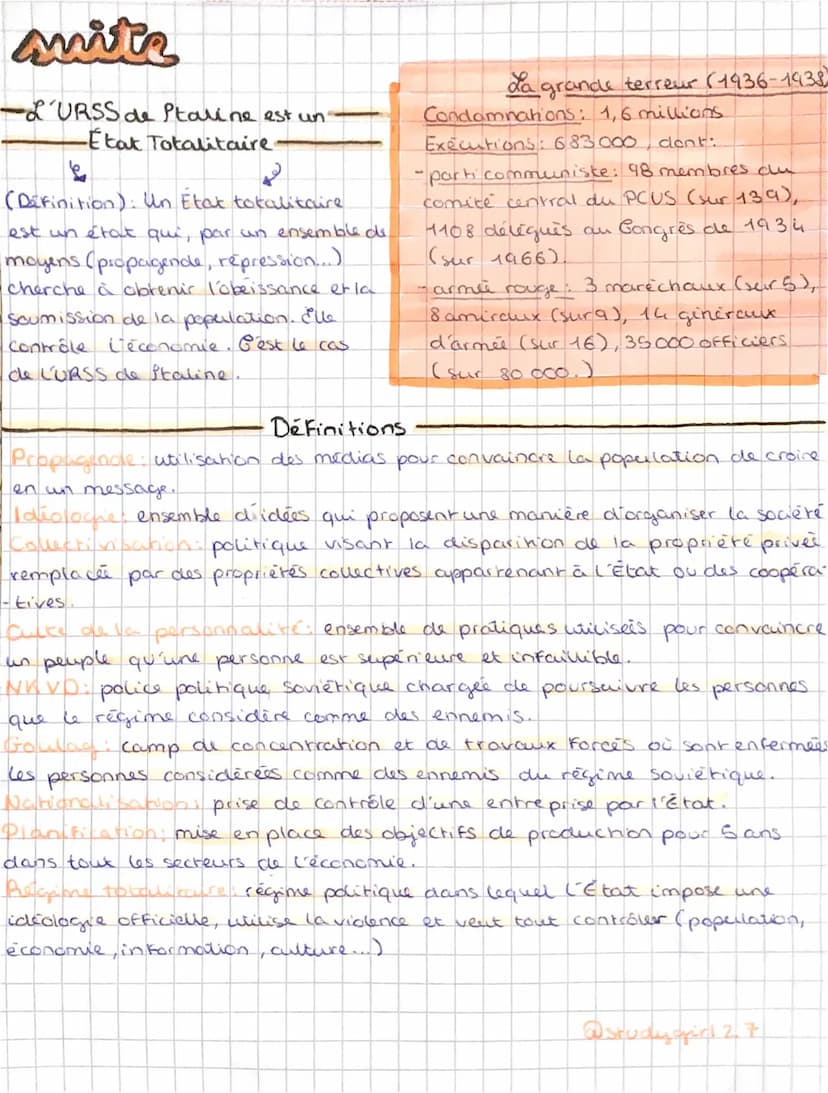 suite
L'URSS de Staline est un
État Totalitaire
(Définition): Un État totalitaire
est un état qui, par un ensemble de
moyens (propagende, répression...)
cherche à obtenir l'obéissance et la
soumission de la population. Elle
contrôle l'économie. C'est le cas
de l'URSS de Staline.
La grande terreur (1936-1938)
Condamnations: 1,6 millions
Exécutions: 683000, dont:
- parti communiste: 98 membres du
comité central du PCUS (sur 139),
1108 délégués au Congrès de 1934
(sur 1966).
- armée rouge: 3 maréchaux (sur 5),
8 amiraux (sur 9), 14 généraux
d'armée (sur 16), 35000 officiers
(sur 80 000.)
Définitions
Propagende: utilisation des médias pour convaincre la population de croire
en un message.
Idéologie: ensemble d'idées qui proposent une manière d'organiser la société
Collectivisation: politique visant la disparition de la propriété privée
remplacée par des propriétés collectives appartenant à l'État ou des coopéra-
-tives.
Culte de la personnalité: ensemble de pratiques utilisées pour convaincre
un peuple qu'une personne est supérieure et infaillible.
NKVD: police politique soviétique chargée de poursuivre les personnes
que le régime considère comme des ennemis.
Goulag: camp de concentration et de travaux forcés où sont enfermées
les personnes considérées comme des ennemis du régime soviétique.
Nationalisation: prise de contrôle d'une entreprise par l'État.
Planification: mise en place des objectifs de production pour 5 ans
dans tout les secteurs de l'économie.
Régime totalitaire: régime politique dans lequel l'État impose une
idéologie officielle, utilise la violence et veut tout contrôler (population,
économie, information, culture...)
@studygirl2.7